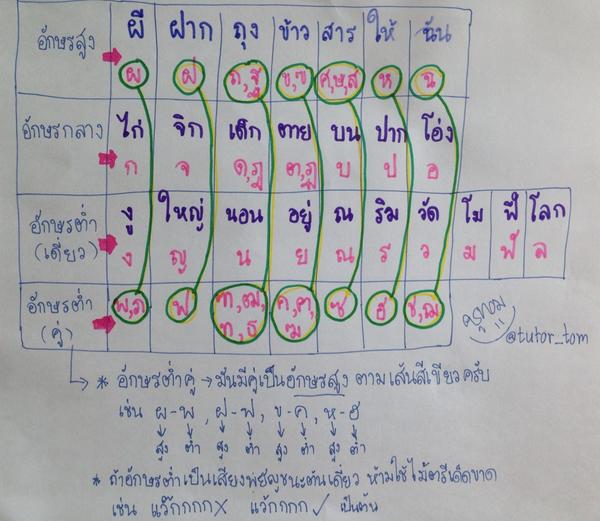 อักษรสูง ผี ฝาก ถุง ข้าว สาร ให้ ฉัน
ผ ฝ ถ,ฐ ข,ฃ ศ,ษ,ส ห ฉ
อักษรกลาง ไก่ จิก เด็ก ตาย บน ปาก โอ่ง
ก จ ด,ฎ ต,ฏ บ ป อ
อักษรต่ำ งู ใหญ่ นอน อยู่ ณ ริม วัด โม ฬี โลก
(เดี่ยว) ง ญ น ย ณ ร ว ม ฬ ล
อักษรต่ำ พ,ภ ฟ ฑ,ฒ, ค,ฅ, ซ ฮ ช,ฌ
(คู่) ท,ธ ฆ
ครูทอม
@tutor_tom
* อักษรต่ำคู่ → มันมีคู่เป็นอักษรสูง ตามเส้นสีเขียวครับ
เช่น ผู-พู, ฝู-ฟู, ขู-คู, หู-ฮู
สูง ต่ำ สูง ต่ำ สูง ต่ำ สูง ต่ำ
* ถ้าอักษรต่ำเป็นเสียงพยัญชนะต้นเดี่ยว ห้ามใช้ไม้ตรีเด็ดขาด
เช่น แว๊กกกก × แว้กกกก ✓ เป็นต้น